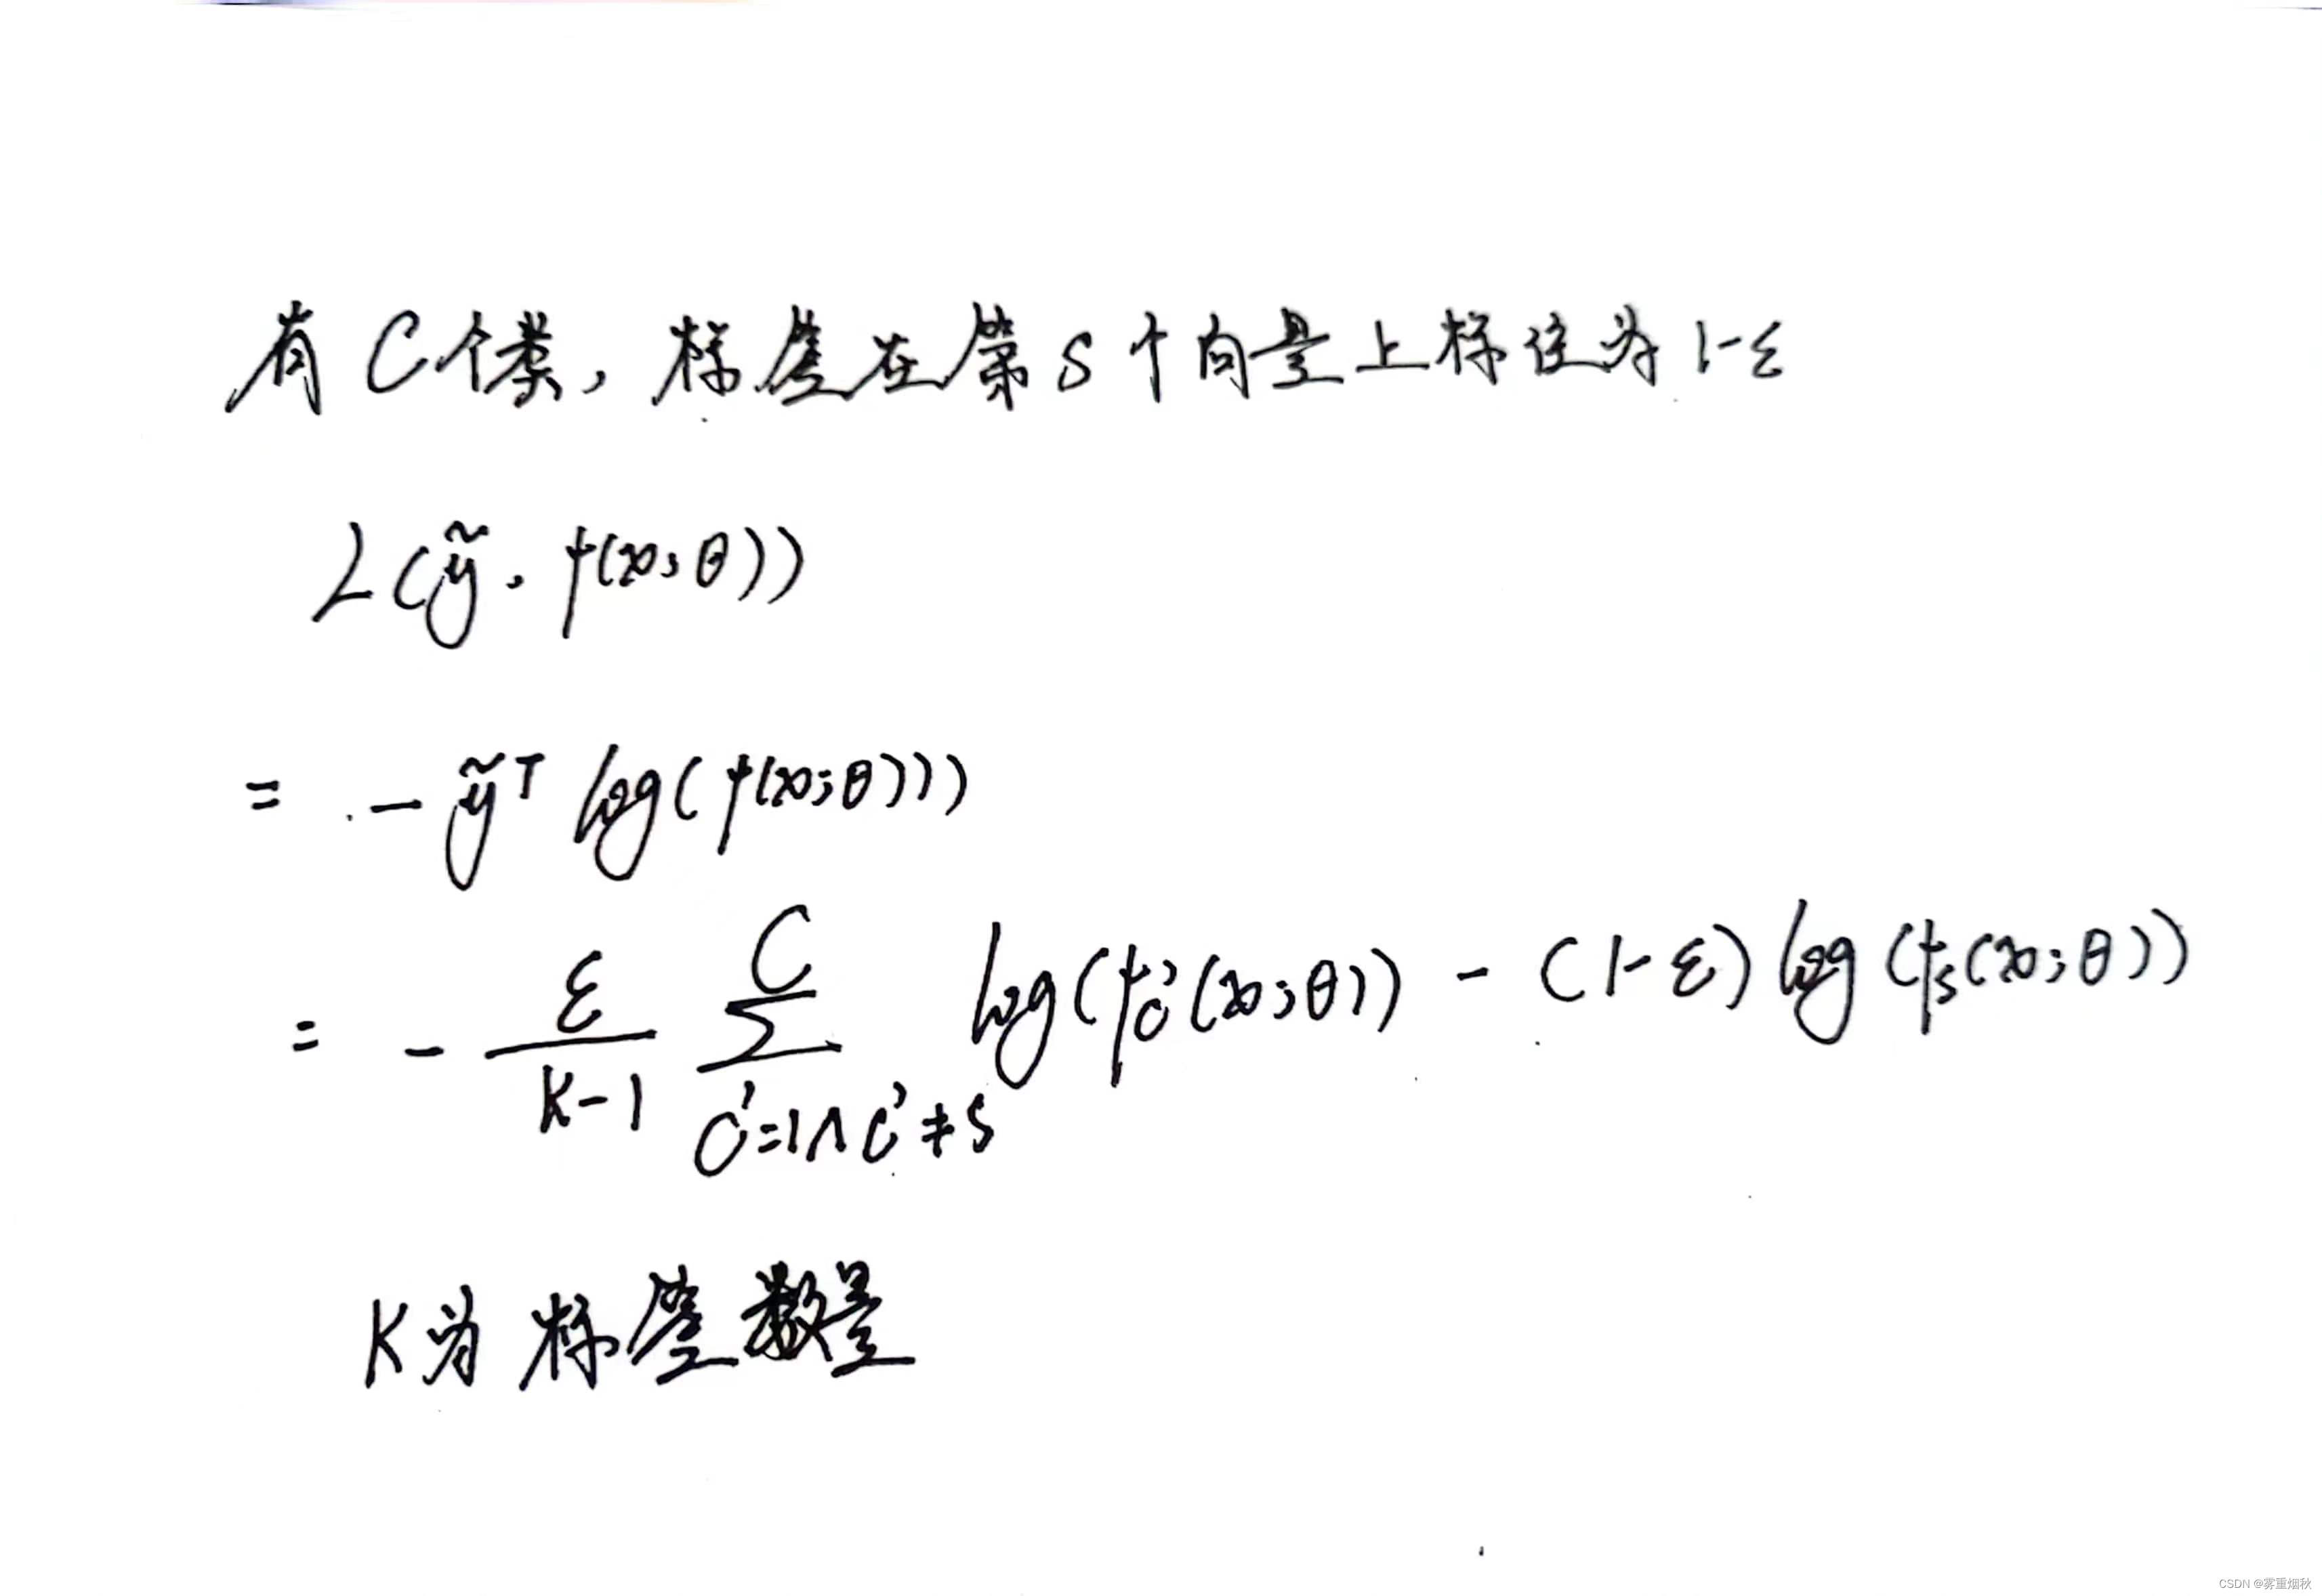 有C个类，标签在第s个向量上标注为1-ε
L(ỹ, f(x;θ))
= -ỹᵀ log(f(x;θ)))
= - ε/(K-1) ∑_{c'=1∧c'≠s}^{C} log(f_{c'}(x;θ)) - (1-ε) log(f_s(x;θ))
K为标签数量
CSDN @雾重烟秋